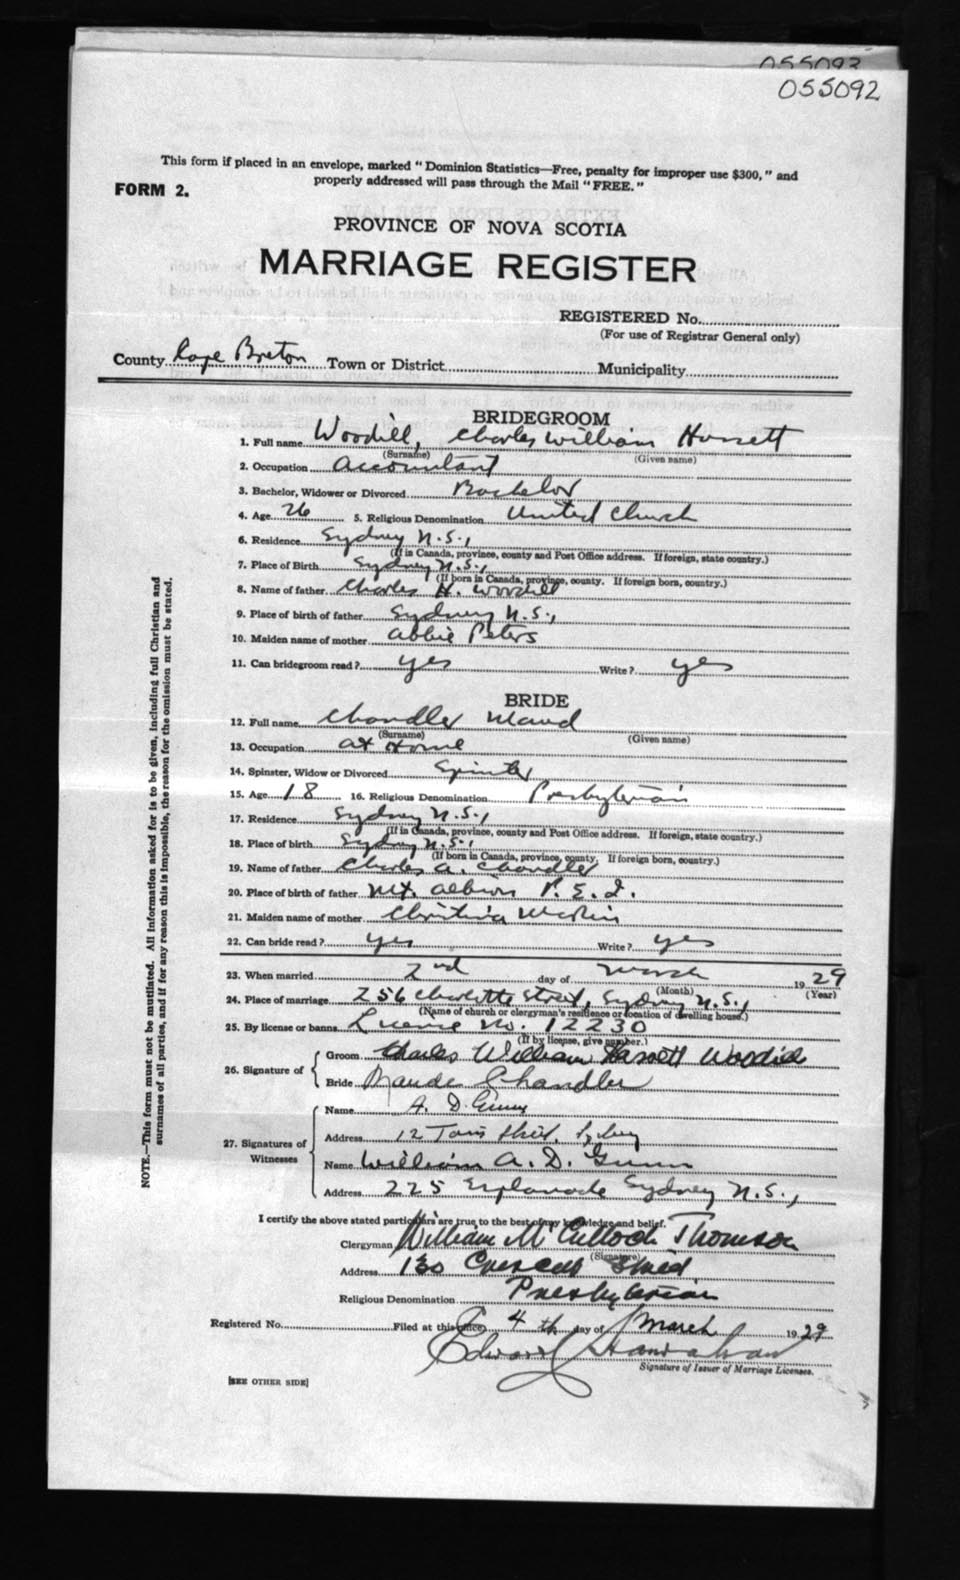 055093
055092
This form if placed in an envelope, marked "Dominion Statistics—Free, penalty for improper use $300," and
properly addressed will pass through the Mail "FREE."
FORM 2.
PROVINCE OF NOVA SCOTIA
MARRIAGE REGISTER
REGISTERED No.
(For use of Registrar General only)
County Cape Breton Town or District Municipality
BRIDEGROOM
1. Full name Woodill, Charles William Hassett
(Surname) (Given name)
2. Occupation Accountant
3. Bachelor, Widower or Divorced Bachelor
4. Age 26 5. Religious Denomination United Church
6. Residence Sydney N.S.,
(If in Canada, province, county and Post Office address. If foreign, state country.)
7. Place of Birth Sydney N.S.,
(If born in Canada, province, county. If foreign born, country.)
8. Name of father Charles H. Woodill
9. Place of birth of father Sydney N.S.,
10. Maiden name of mother Abbie Peters
11. Can bridegroom read? yes Write? yes
BRIDE
12. Full name Chandler Maud
(Surname) (Given name)
13. Occupation at Home
14. Spinster, Widow or Divorced Spinster
15. Age 18 16. Religious Denomination Presbyterian
17. Residence Sydney N.S.,
(If in Canada, province, county and Post Office address. If foreign, state country.)
18. Place of birth Sydney N.S.,
(If born in Canada, province, county. If foreign born, country.)
19. Name of father Charles A. Chandler
20. Place of birth of father Mt. Albion P.E.I.
21. Maiden name of mother Christina
22. Can bride read? yes Write? yes
23. When married 2nd day of March 1929
(Month) (Year)
24. Place of marriage 256 Charlotte Street, Sydney N.S.,
(Name of church or clergyman's residence or location of dwelling house.)
25. By license or banns License No. 12230
(If by license, give number.)
26. Signature of
Groom Charles William Hassett Woodill
Bride Maude Chandler
27. Signatures of Witnesses
Name A. D. Gunn
Address 12 Street, Sydney
Name William A. D. Gunn
Address 225 Esplanade Sydney N.S.,
I certify the above stated particulars are true to the best of my knowledge and belief.
Clergyman William McCulloch Thomson
(Signature)
Address 130 Crescent Street
Religious Denomination Presbyterian
Registered No. Filed at this office 4th day of March 1929
Edward Hanrahan
Signature of Issuer of Marriage Licenses.
[SEE OTHER SIDE]
NOTE.—This form must not be mutilated. All information asked for is to be given, including full Christian and
surnames of all parties, and if for any reason this is impossible, the reason for the omission must be stated.